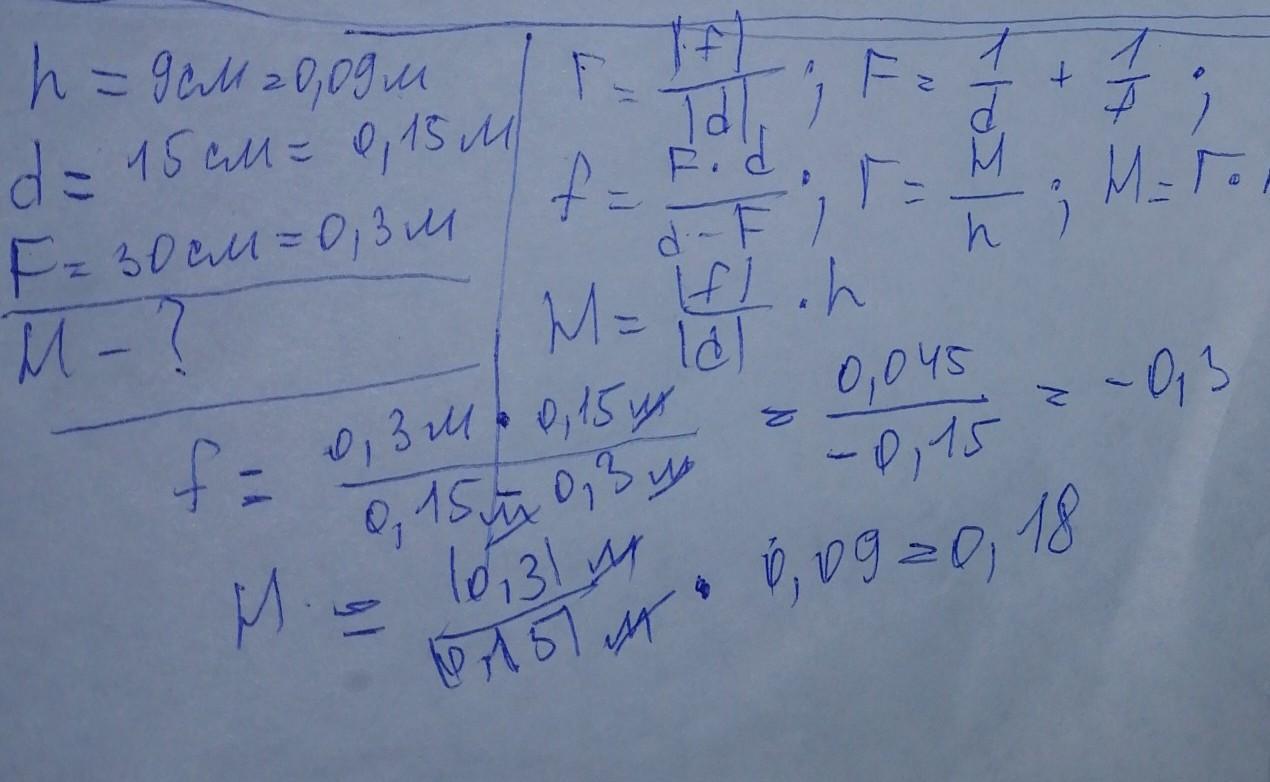 h = 9см = 0,09м
d = 15см = 0,15м
F = 30см = 0,3м
H - ?
Г = |f|/|d| ; F = 1/d + 1/f ;
f = F·d/d-F ; Г = H/h ; H = Г·
H = |f|/|d| · h
f = 0,3м · 0,15м/0,15м - 0,3м = 0,045/-0,15 = -0,3
H = |0,3|м/|0,15|м · 0,09 = 0,18